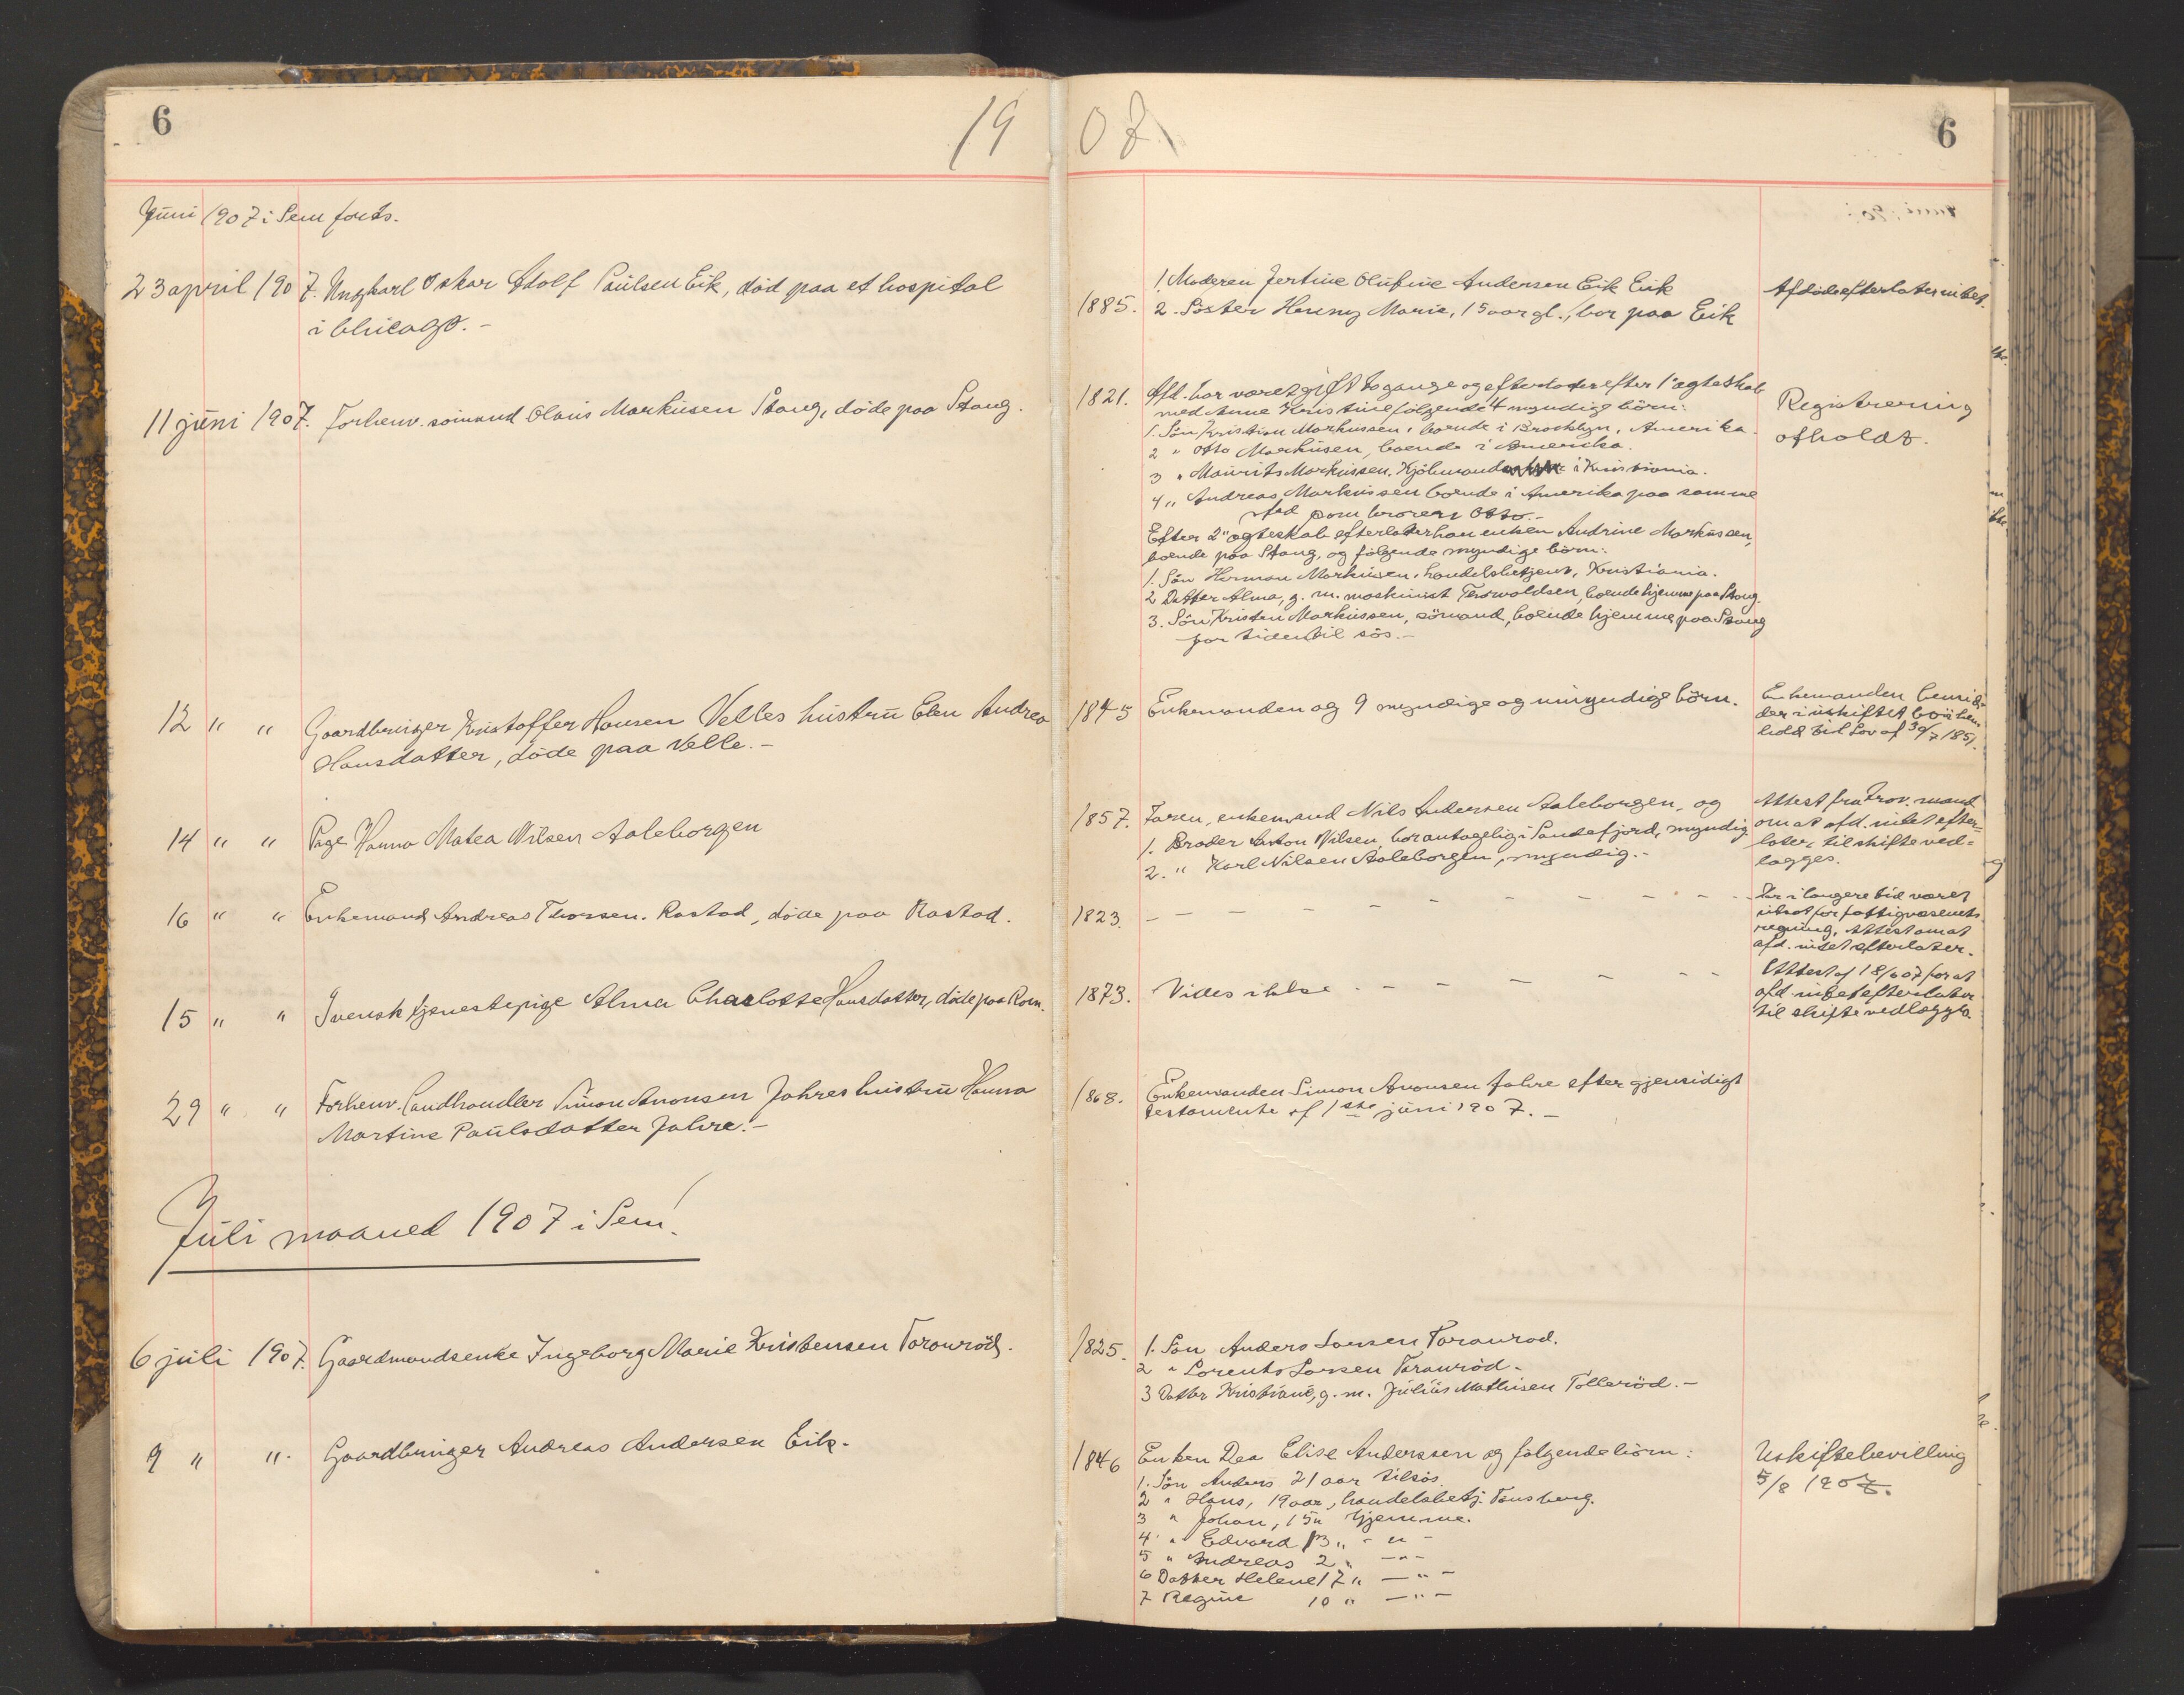 6
19
Juni 1907 i Sem forts.
23 april 1907. Ungkarl Oskar Adolf Paulsen Eik, död paa et hospital
i Chicago.-
11 juni 1907. Forhenv. sømand Olaus Markussen Stang, döde paa Stang.
12 " " Gaardbruger Kristoffer Hansen Velles hustru Elen Andrea
Hansdatter, döde paa Velle.-
14 " " Pige Hanna Matea Nilsen Aaleborgen
16 " " Enkemand Andreas Thorsen. Rastad, döde paa Rastad.
15 " " Svensk tjenestepige Alma Charlotte Hansdatter, döde paa
29 " " Forhenv. Landhandler Simon Aronsen Jahres hustru Hanna
Martine Paulsdatter Jahre.-
Juli maaned 1907 i Sem.
6 juli 1907. Gaardmandsenke Ingeborg Marie Kristensen Taranröd.
9 " ". Gaardbruger Andreas Andersen Eik.
07.
6
1. Moderen Jertine Olufine Andersen Eik Eik
1885. 2. Söster Henny Marie, 15 aar gl., bor paa Eik
Afdöde efterlater intet.
1821. Afd. har været gift to gange og efterlader efter 1' ægteskab
med Anne Kristine følgende 4 myndige börn:
1. Sön Kristian Markussen, boende i Brooklyn, Amerika.
2 " Otto Markusen, boende i Amerika.
3 " Maurits Markussen. Kjöbmand i Kristiania.
4 " Andreas Markussen boende i Amerika paa samme
sted som broren Otto.-
Efter 2" ægteskab efterlader han enken Andrine Markussen,
boende paa Stang, og følgende myndige börn:
1. Sön Herman Markusen, handelsbetjent, Kristiania.
2 Datter Alma, g. m. maskinist Thorvaldsen, boende hjemme paa Stang.
3. Sön Kristen Markussen, sömand, boende hjemme paa Stang
for tiden til sös.-
Registrering
afholdt.
1845 Enkemanden og 9 myndige og umyndige börn.
Enkemanden
der i uskiftet bo i hen-
hold til Lov af 30/7 1851.
1857. Faren, enkemand Nils Andersen Aaleborgen, og
1. Broder Anton Nilsen, bor antagelig i Sandefjord, myndig
2. " Karl Nilsen Aaleborgen, myndig.-
Attest fra Prov. mand
om at afd. intet efter-
later, til skifte ved-
lægges.
1823. - - - - - - - - - -
Har i længere tid været
utsat for fattigvæsenets
regning, Attest om at
afd. intet efterlater.
1873. Vides ikke - - - - - -
Attest af 18/6 07 for at
afd. intet efterlater
til skifte vedlægges.
1868. Enkemanden Simon Aronsen Jahre efter gjensidigt
testamente af 1ste juni 1907.-
1825. 1. Sön Anders Larsen Taranröd.
2 " Lorents Larsen Taranröd-
3 Datter Kristiane, g. m. Julius Mathisen Tolleröd.-
1846 Enken Dea Elise Anderssen og følgende börn:
1. Sön Anders 21 aar tilsös.
2 " Hans, 19 aar, handelsbetj. Tønsberg.
3 " Johan, 15 " hjemme.
4 " Edvard 13 " - " -
5 " Andreas 2 " - " -
6 Datter Helene 17 " - " -
7 Regine 10 " - " -
Uskiftebevilling
5/8 1907.